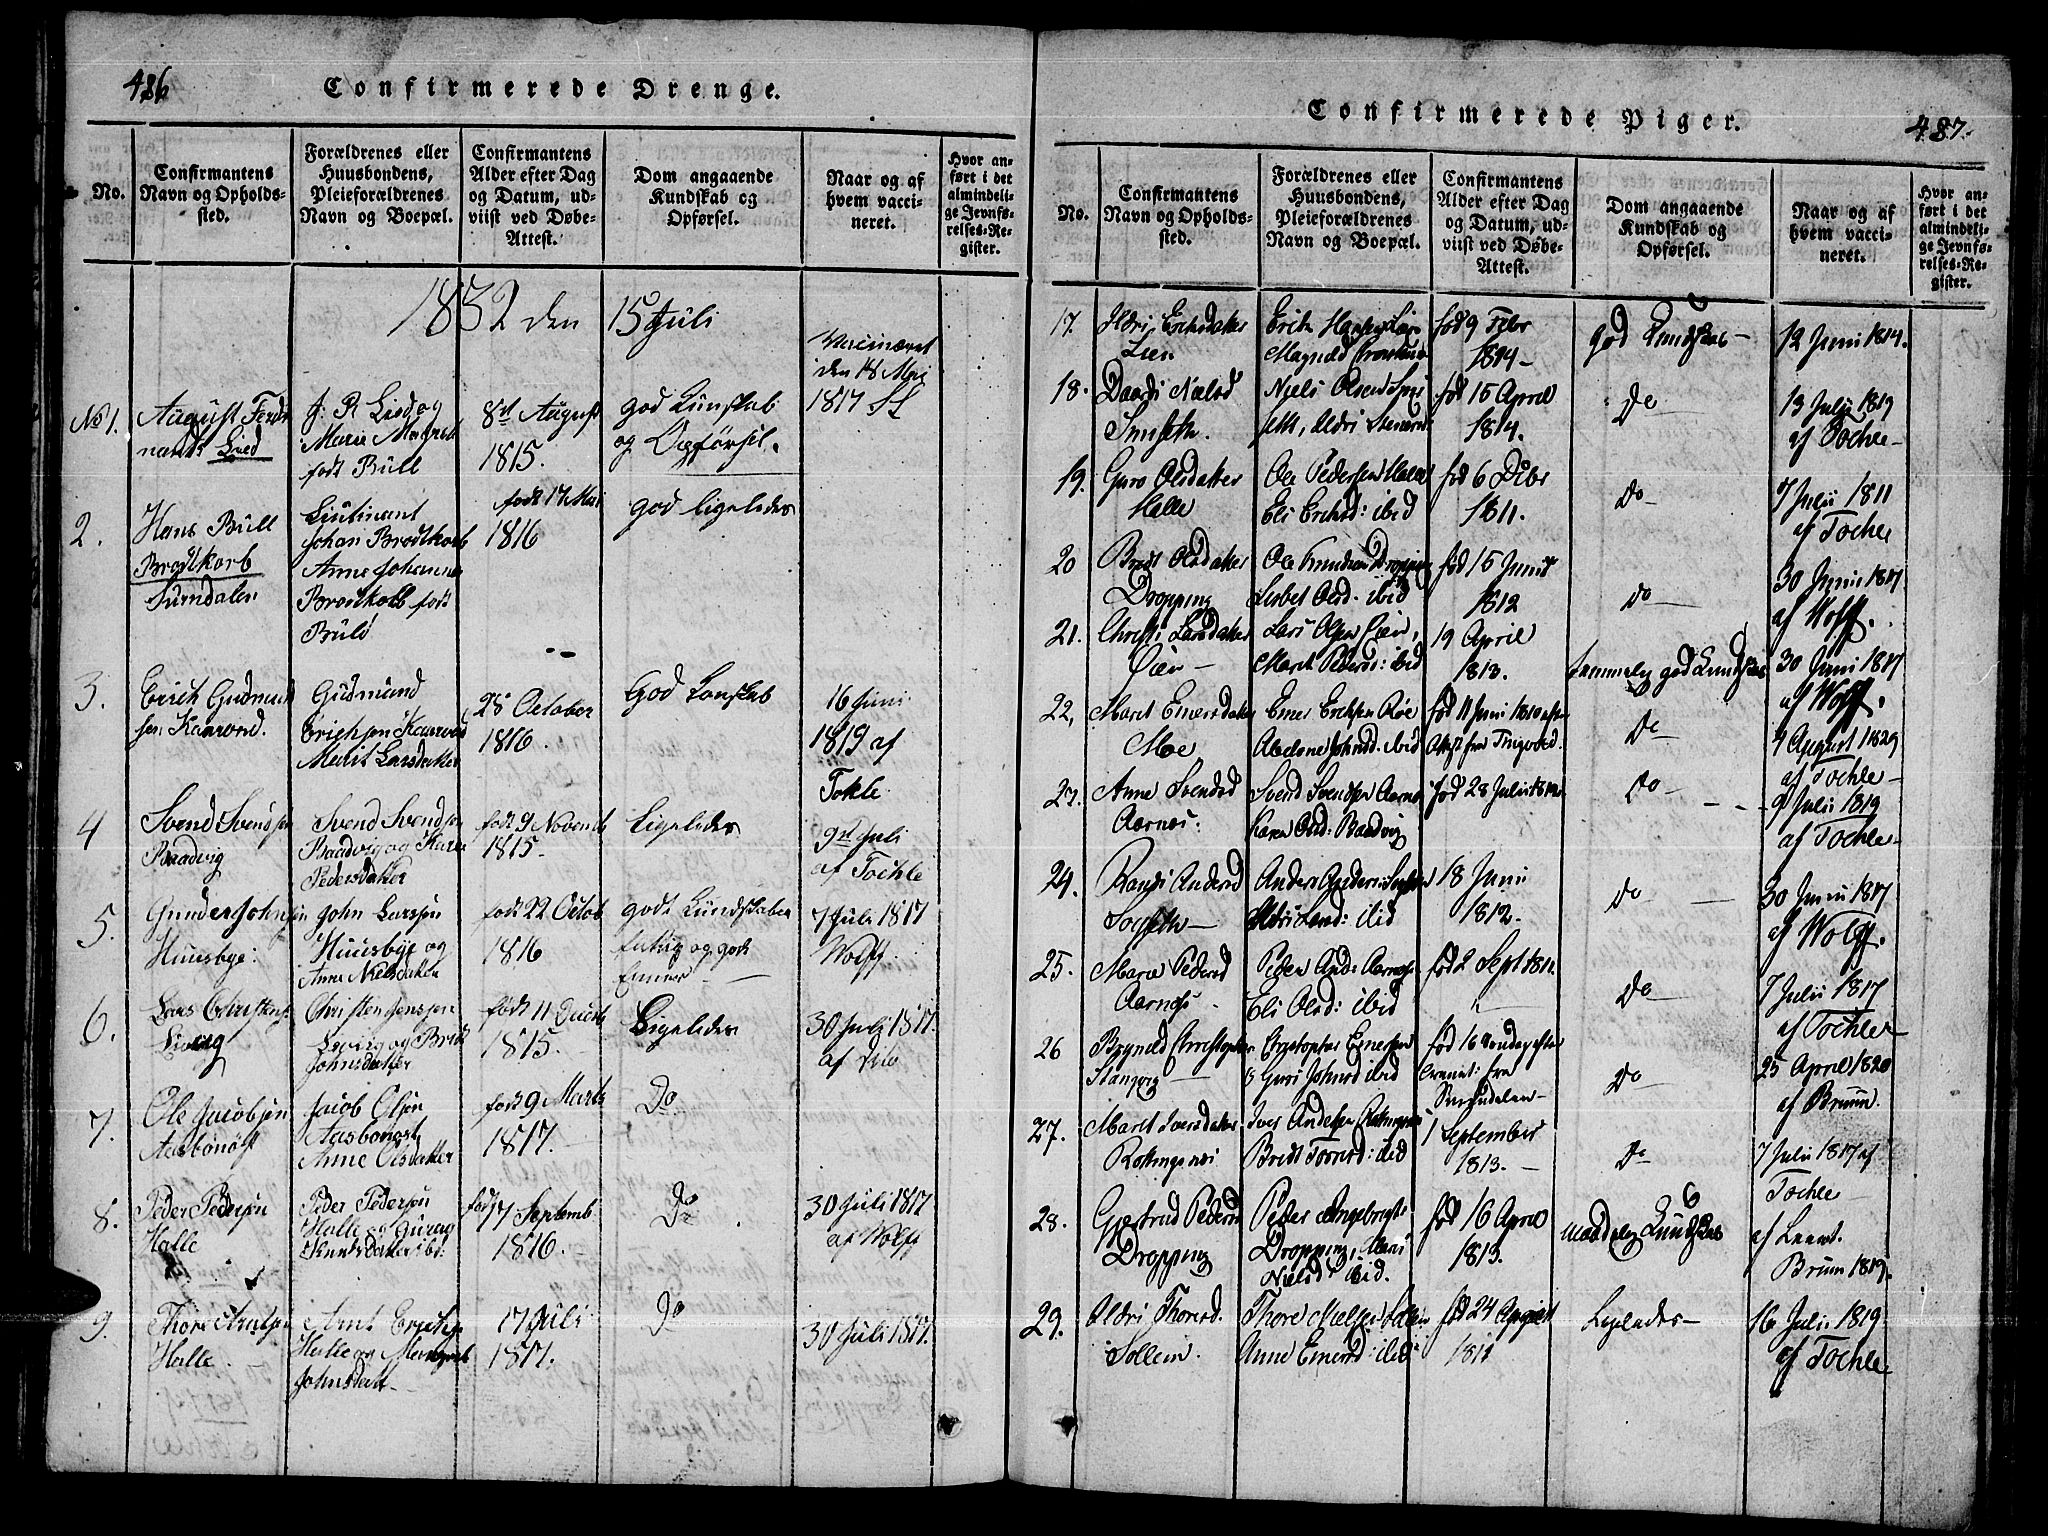 486
Confirmerede Drenge.
No.
Confirmantens
Navn og Opholds-
sted.
Forældrenes eller
Huusbondens,
Pleieforældrenes
Navn og Boepæl.
Confirmantens
Alder efter Dag
og Datum, ud-
viist ved Døbe-
Attest.
Dom angaaende
Kundskab og
Opførsel.
Naar og af
hvem vacci-
neret.
Hvor an-
ført i det
almindeli-
ge Jevnfø-
relses-Re-
gister.
1832 den 15 Juli
No 1.
August Ferdi
nandt Lied
J. R Lied og
Marie Magret
født Büll
8de August
1815.
god Kunskab
og Opførsel.
Vaccineret
den 18 Mai
1817
2.
Hans Büll
Brodtkorb
Surndalen
Liutinant
Johan Brodtkorb
Anne Johanne
Brodtkorb født
Bülo
født 17 Mai
1816
god ligeledes
3.
Erich Gudmund
sen Kaarvord.
Gudmund
Erichsen Kaarvod
Marit Larsdatter
28 October
1816.
God Konskab
16 Juni
1819 af
Tokle
4
Svend Svendsen
Baadvig
Svend Svendsen
Baadvig og Karen
Pedersdatter
født 9 Novemb
1815.
Ligeledes
9de Juli
af Tochle
5.
Gunder Johnsen
Huusbye:
John Larsen
Huusbye og
Anne Nielsdatter
født 22 Octob
1816
godt Kundskaber
og god
7 Juli 1817
Wolff.
6.
Lars Christens
Lervig
Christen Jenssen
Lervig og Bridt
Johnsdatter
født 11 Decb
1815.
Ligeledes
30 Juli 1817.
af Do
7.
Ole Jacobsen
Aasbönost
Jacob Olsen
Aasbonost
Anne Olsdatter
født 9 Marts
1817.
Do
8.
Peder Pedersen
Halle
Peder Pedersen
Halle og Guraag
Knutsdatter ibi:
født 7 Septemb
1816.
Do
30 Juli 1817
af Wolff
9.
Thore Arntsen
Halle.
Arnt Erichse
Halle og Margret
Johnsdatt
17 Juli
1817.
Do
30 Juli 1817.
Confirmerede Piger.
487.
No.
Confirmantens
Navn og Opholds-
sted.
Forældrenes eller
Huusbondens,
Pleieforældrenes
Navn og Boepæl.
Confirmantens
Alder efter Dag
og Datum, ud-
viist ved Døbe-
Attest.
Dom angaaende
Kundskab og
Opførsel.
Naar og af
hvem vacci-
neret.
Hvor an-
ført i det
almindeli-
ge Jevnfø-
relses-Re-
gister.
17.
Ildri Erichsdatter
Lien
Erich Hansen Lien
Magnild
fød 9 Febr
1814-
god Kundskab-
12 Juni 1814.
18.
Daardi Nielsd
Smiseth.
Niels Olsen Smi
seth, Ildri
fød 15 April
1814.
Do
13 Julii 1819
af Tochle
19.
Guro Olsdatter
Halle
Ole Pedersen Halle
Eli Erichsd: ibid
fød 6 Dcbr
1811.
Do
7 Julii 1811
af Tochle
20
Bridt Olsdatter
Dropping
Ole Knudsen Dropping
Lisbet Olsd. ibid
fød 15 Junii
1812
Do
30 Junii 1817
af Wolff.
21.
Christi Larsdatter
Øien
Lars Olsen Øien,
Marit Pedersd: ibid
19 April
1813.
temmelig god Kundskab
30 Junii 1817
af Wolff.
22,
Maret Emersdatter
Moe
Emer Erichsen Røe
Abelone Johnsd. ibid
fød 11 Juni 1810 efter
Attest fra Tingvold.
Do
4 August 1829
af Tochle
23.
Anne Svendsd
Aarnes:
Svend Svendsen Aarnes
Karen Olsd: Baadvig
fød 28 Julii 1812
Do
9 Julii 1819
af Tochle
24.
Randi Andersd
Sogseth
Anders Andersen
Ildri Larsd: ibid
18 Junii
1812.
Do
30 Junii 1817
af Wolff.
25.
Maria Pedersd
Aarnes
Peder And: Aarnes
Eli Olsd: ibid
fød 2 Sept 1811.
Do
7 Julii 1817
af Tochle
26
Brynild Christopher
Stangvig
Christopher Emersen
& Guri Johnsd ibid
fød 16 Søndag efter
Trinit: fra
Surendalen
Do
25 April 1820
af Bruun.
27.
Maret Iversdatter
Rottingsnes
Iver Andersen Rottingsnes
Bridt Toresd: ibid
1 September
1813.
Do
7 Julii 1817 af
Tochle
28.
Gjertrud Pedersd
Dropping
Peder Ingebrigts
Dropping, Mari
Nielsd ibid.
fød 16 April
1813.
maadelig Kundskab
af Leunt.
Bruun 1819.
29.
Ildri Thoresd.
Sollem.
Thore Nielsen Sollem
Anne Emersd: ibid
fød 24 August
1811
Ligeledes
16 Julii 1819
af Tochle